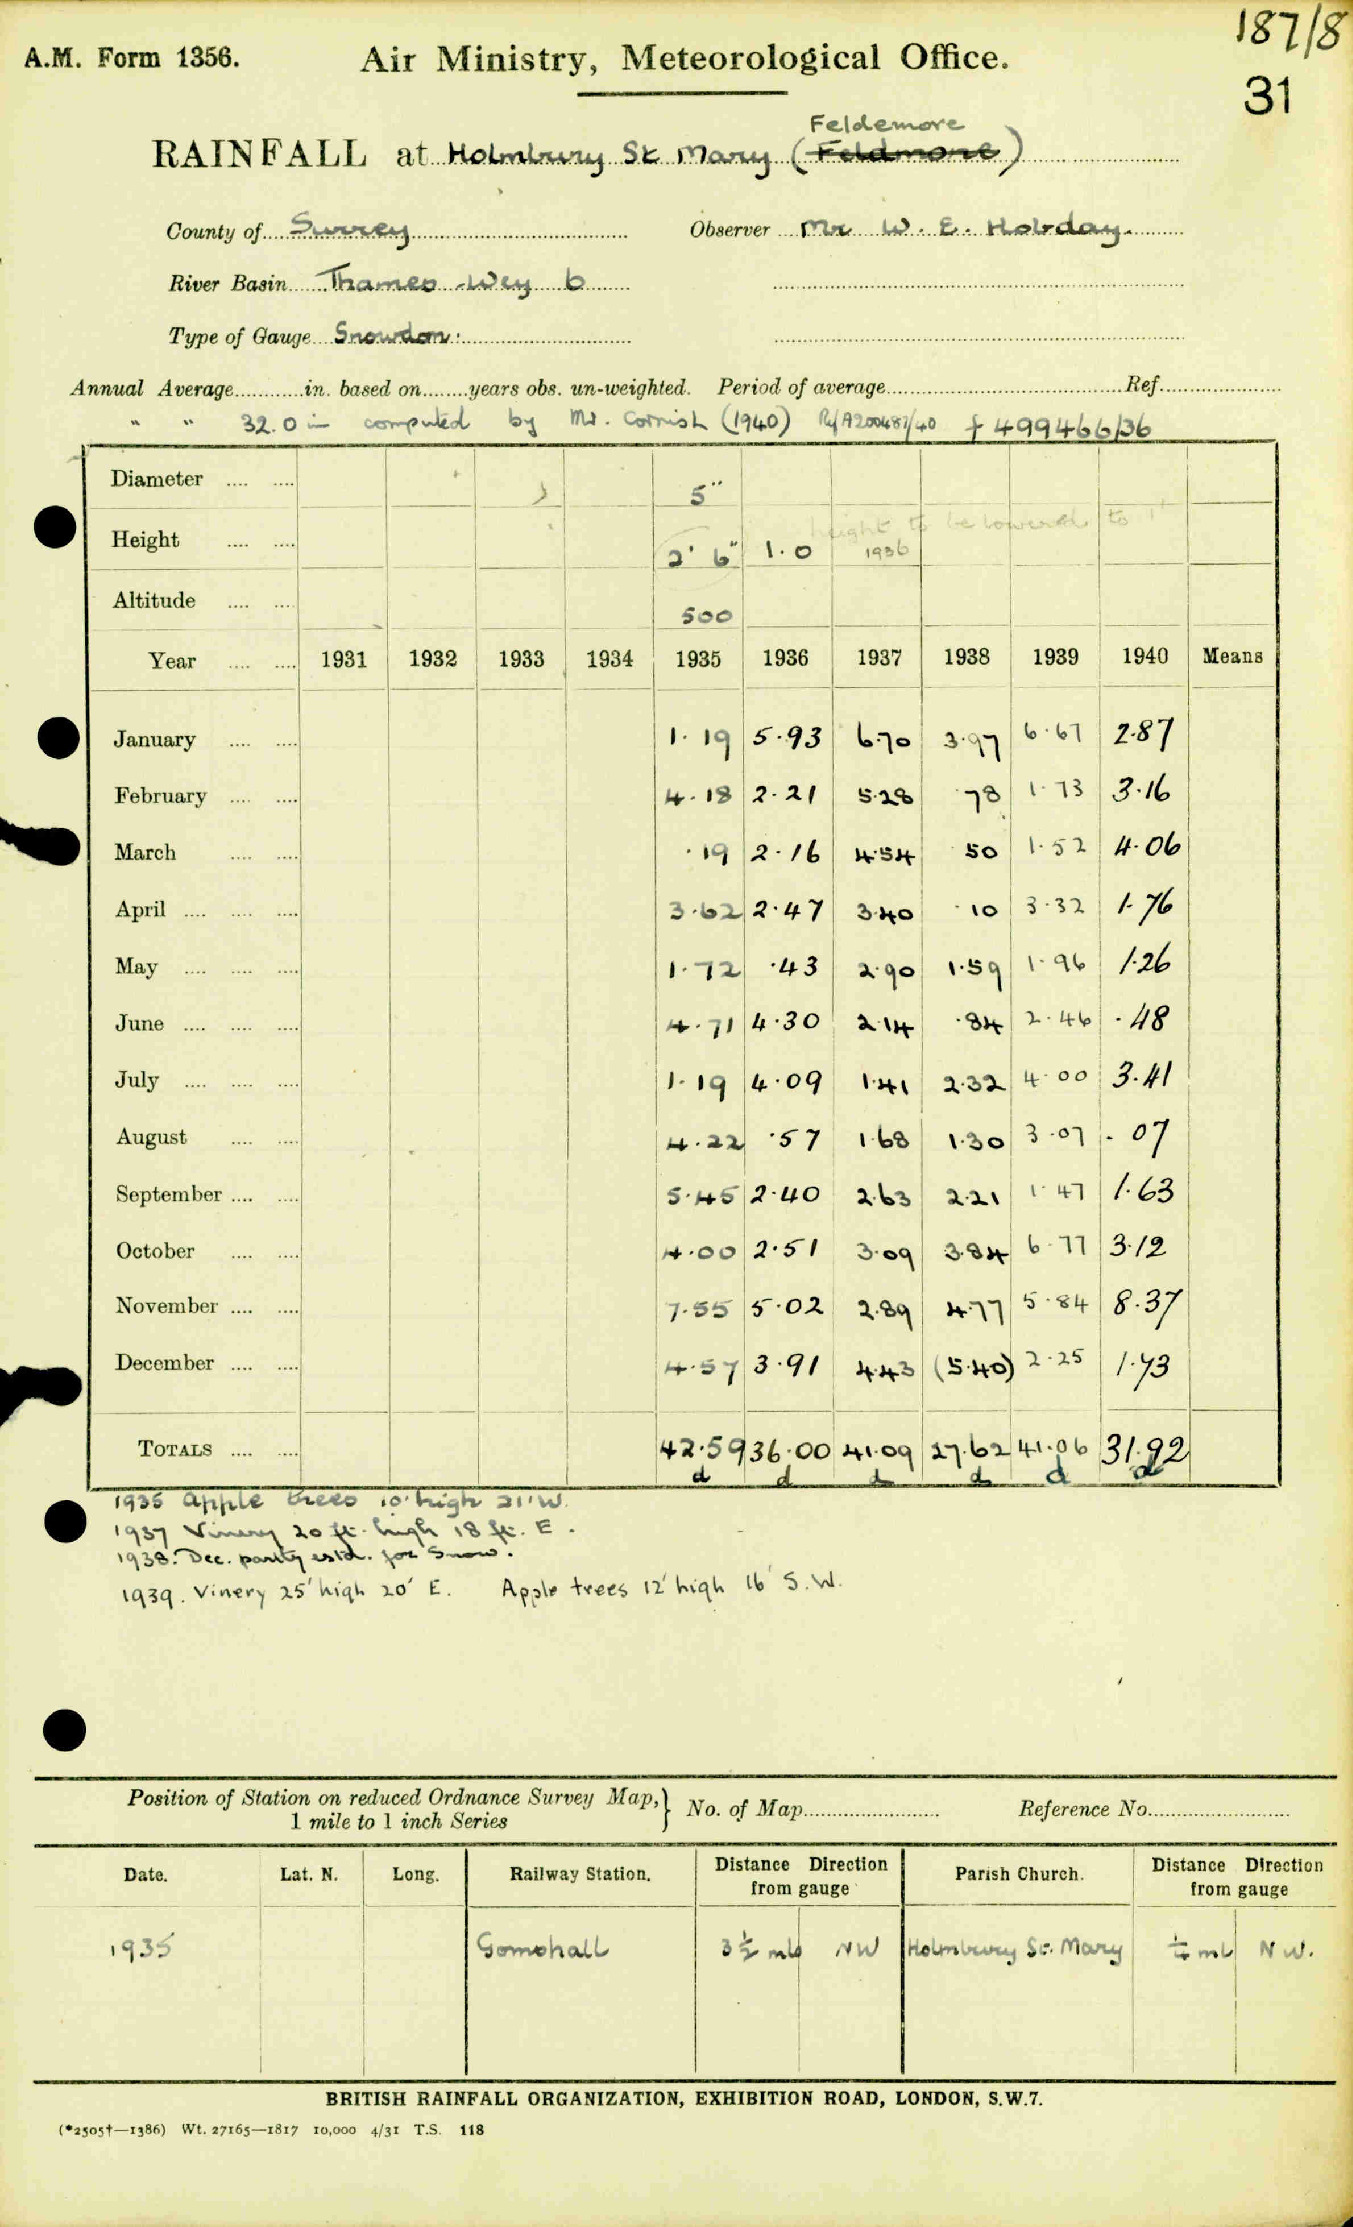 187/8
A.M. Form 1356. Air Ministry, Meteorological Office.
31
Feldemore
RAINFALL at Holmbury St Mary (Feldmore)
County of Surrey Observer Mr W. E. Hobday.
River Basin Thames - Wey 6
Type of Gauge Snowdon.
Annual Average............in. based on........years obs. un-weighted. Period of average........................Ref.....................
" " 32.0 in computed by Mr. Cornish (1940) Rf A200482/40 f 499466/36
Diameter .... .... 5"
height to be lowered to 1'
Height .... .... 2' 6" 1.0 1936
Altitude .... .... 500
Year .... .... 1931 1932 1933 1934 1935 1936 1937 1938 1939 1940 Means
January .... .... 1.19 5.93 6.70 3.97 6.67 2.87
February .... .... 4.18 2.21 5.28 .78 1.73 3.16
March .... .... .19 2.16 4.54 .50 1.52 4.06
April .... .... .... 3.62 2.47 3.40 .10 3.32 1.76
May .... .... .... 1.72 .43 2.90 1.59 1.96 1.26
June .... .... .... 4.71 4.30 2.14 .84 2.46 .48
July .... .... .... 1.19 4.09 1.41 2.32 4.00 3.41
August .... .... 4.22 .57 1.68 1.30 3.07 .07
September .... .... 5.45 2.40 2.63 2.21 1.47 1.63
October .... .... 4.00 2.51 3.09 3.84 6.77 3.12
November .... .... 7.55 5.02 2.89 4.77 5.84 8.37
December .... .... 4.57 3.91 4.43 (5.40) 2.25 1.73
TOTALS .... .... 42.59 36.00 41.09 27.62 41.06 31.92
d d d d d d
1935 Apple trees 10' high 21' W.
1937 Vinery 20 ft. high 18 ft. E.
1938. Dec. partly estd. for Snow.
1939. Vinery 25' high 20' E. Apple trees 12' high 16' S.W.
Position of Station on reduced Ordnance Survey Map, } No. of Map........................ Reference No.........................
1 mile to 1 inch Series
Date. Lat. N. Long. Railway Station. Distance Direction from gauge Parish Church. Distance Direction from gauge
1935 Gomshall 3½ mls NW Holmbury St. Mary ¼ ml N W.
BRITISH RAINFALL ORGANIZATION, EXHIBITION ROAD, LONDON, S.W.7.
(*2505†—1386) Wt. 27165—1817 10,000 4/31 T.S. 118